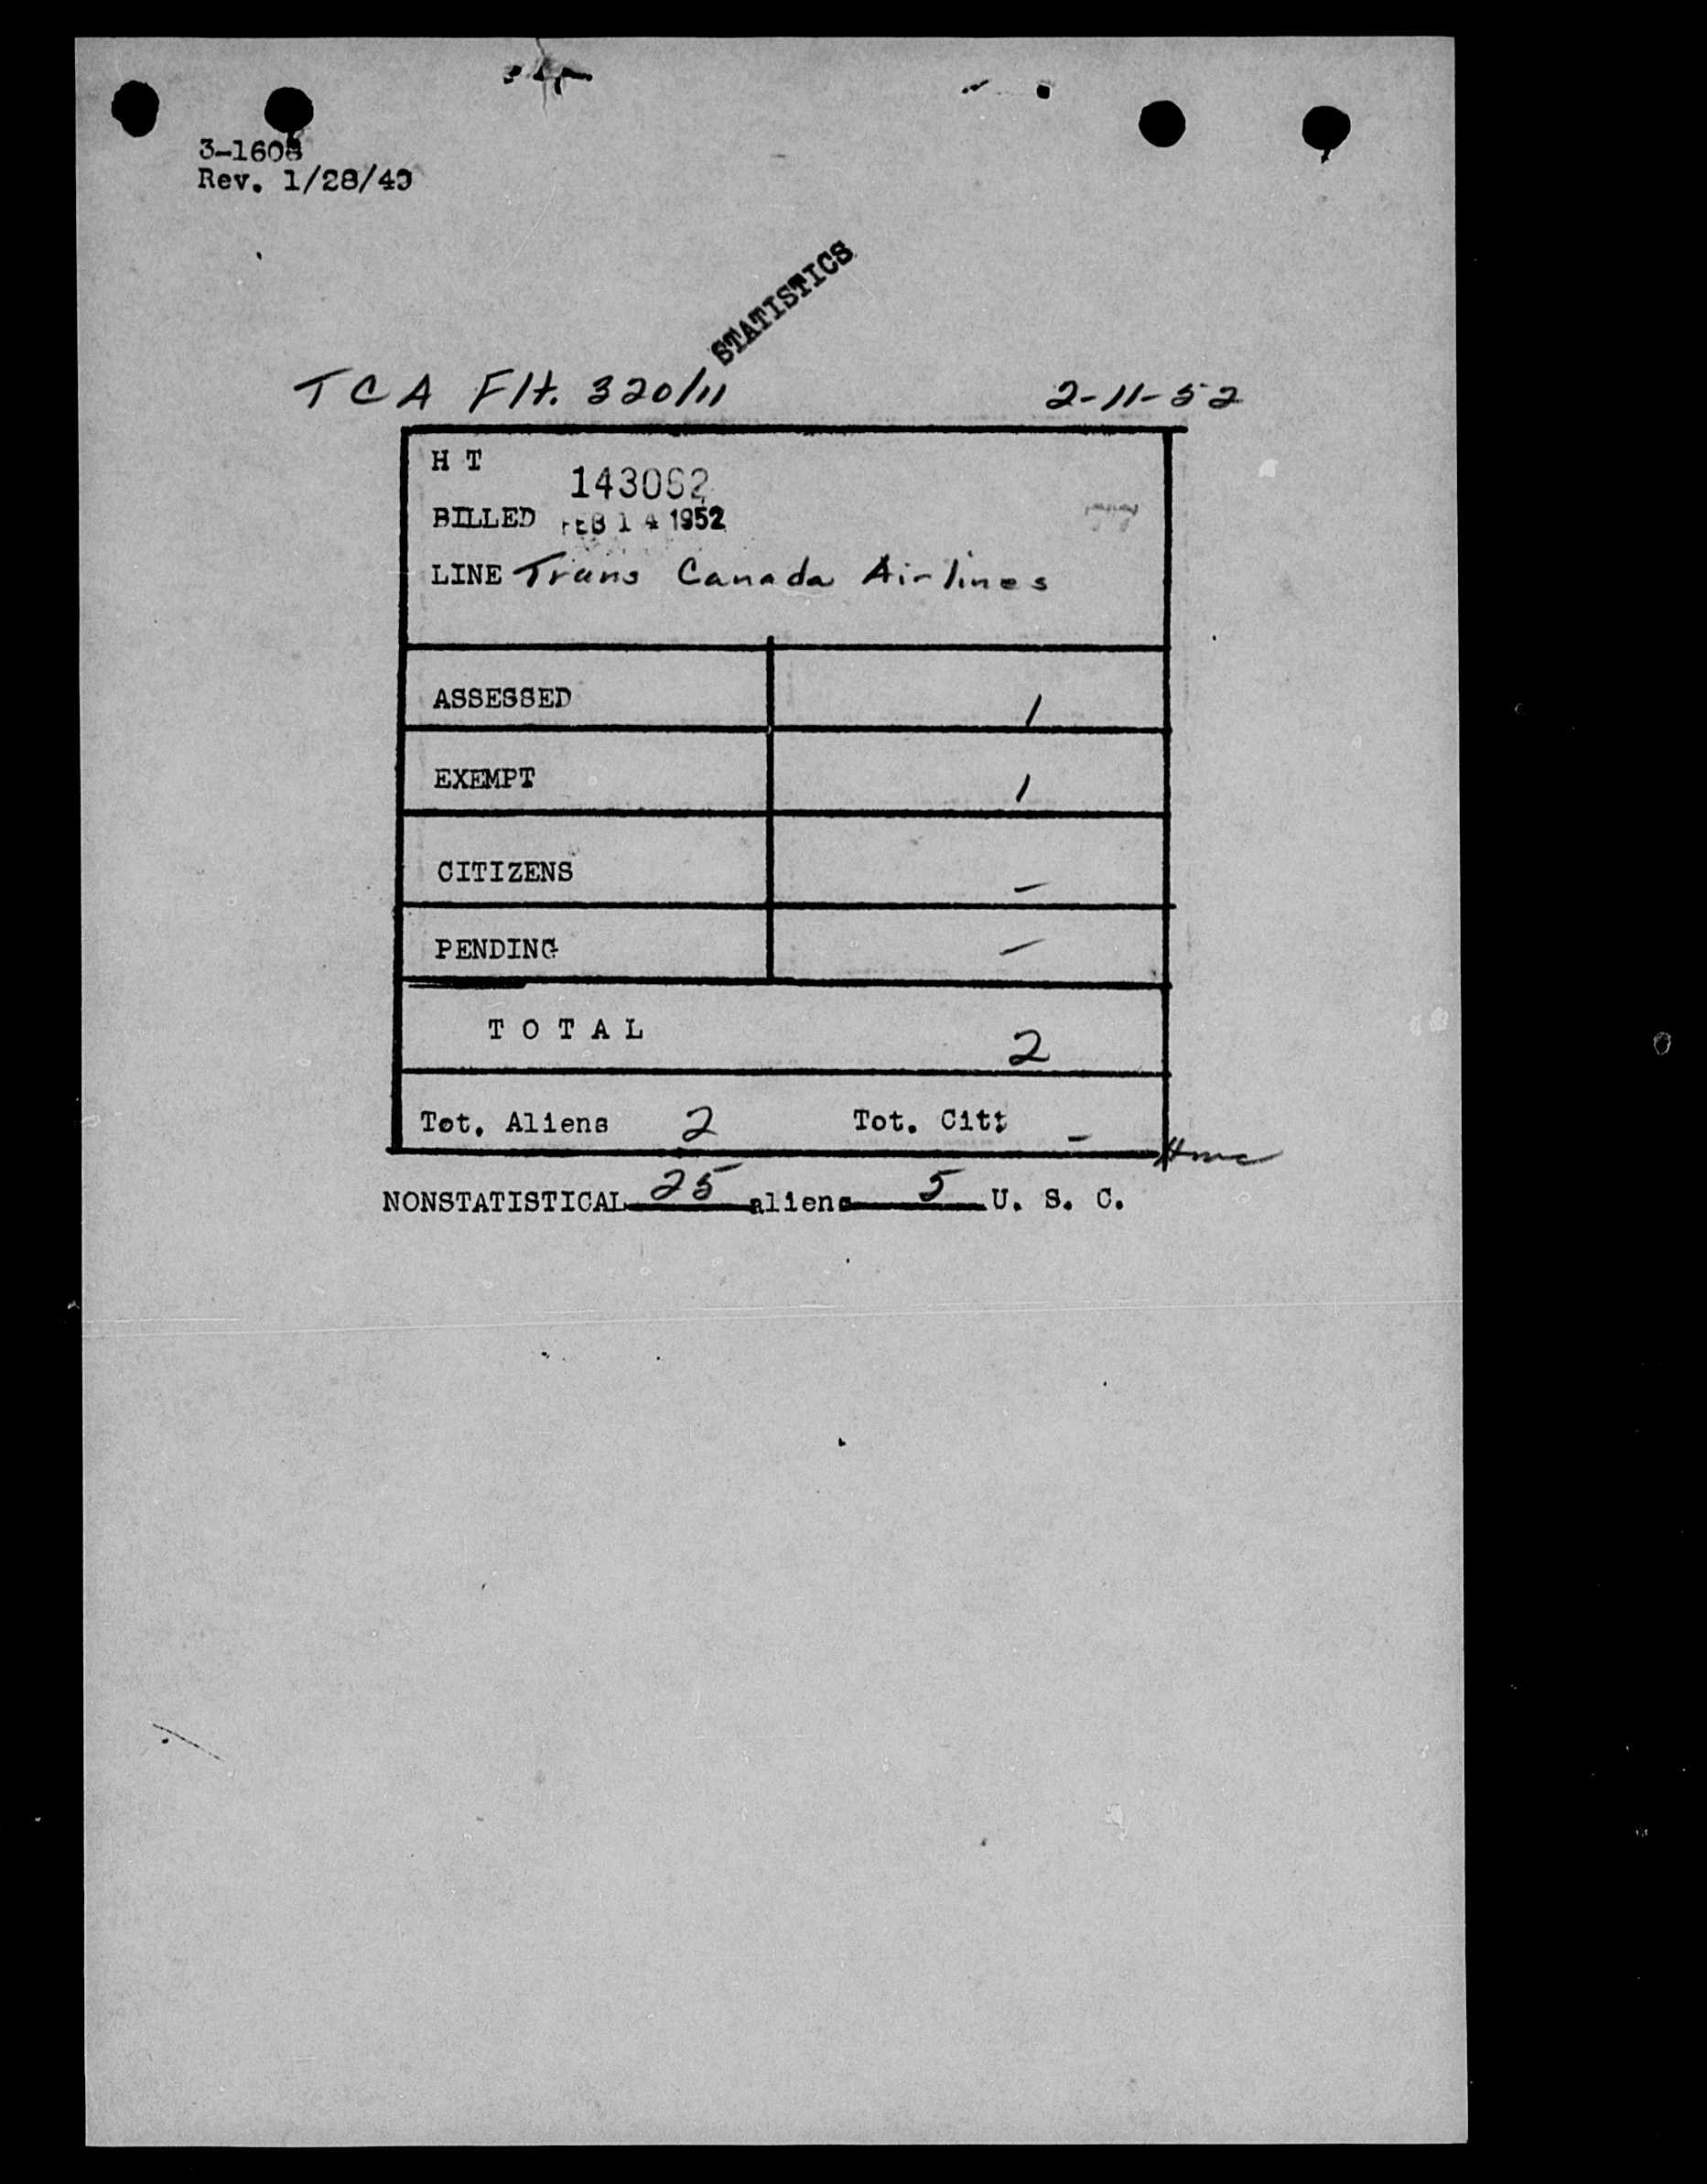 3-1608
Rev. 1/28/49
STATISTICS
TCA Flt. 320/11 2-11-52
H T
143062
BILLED FEB 14 1952
LINE Trans Canada Air lines
ASSESSED 1
EXEMPT 1
CITIZENS –
PENDING –
T O T A L 2
Tot. Aliens 2 Tot. Citt –
NONSTATISTICAL 25 aliens 5 U. S. C.